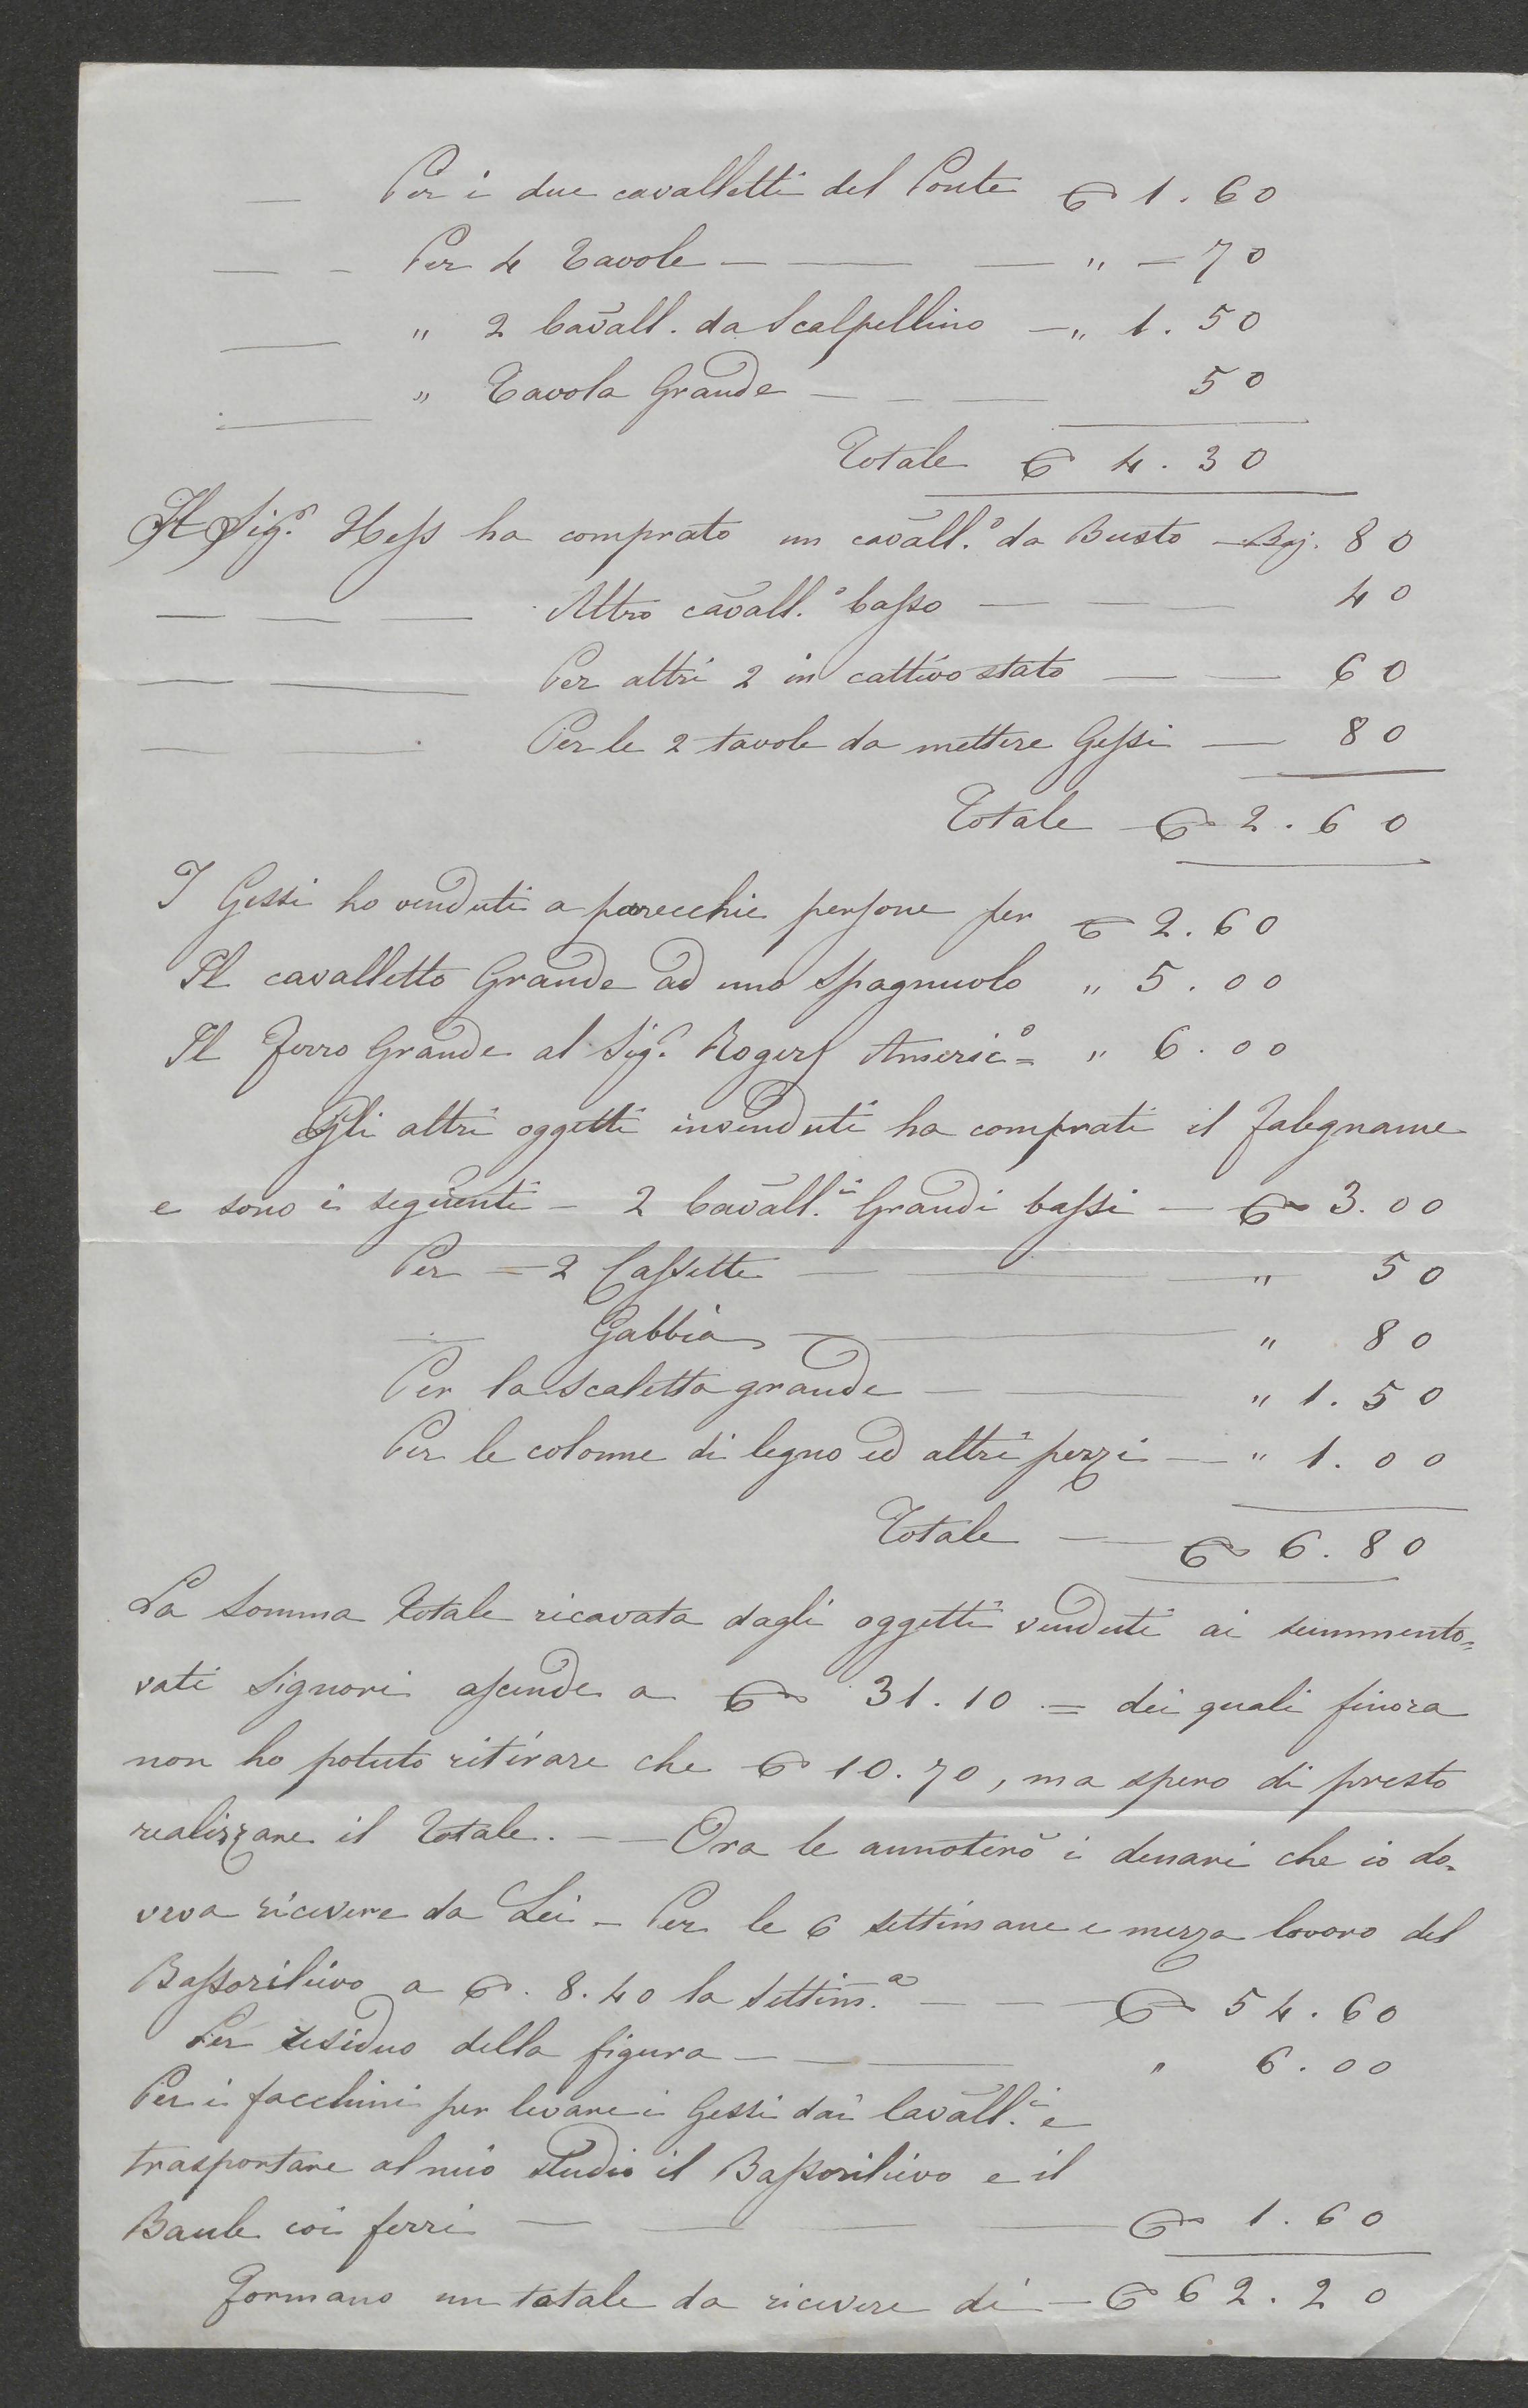 Per i due cavalletti del Ponte ₢ 1.60
Per 4 Tavole — — — " — 70
" 2 Cavall. da Scalpellino — " 1.50
" Tavola Grande — — — 50
Totale ₢ 4.30
Il Sig.r Hess ha comprato un cavall.o da Busto — Baj. 80
— — — Altro cavall.o basso — — — 40
— — Per altri 2 in cattivo stato — — 60
— — Per le 2 tavole da mettere Gessi — 80
Totale ₢ 2.60
I Gessi ho venduti a parecchie persone per ₢ 2.60
Il cavalletto Grande ad uno Spagnuolo " 5.00
Il Ferro Grande al Sig.r Rogers Americ.o = " 6.00
Gli altri oggetti invenduti ha comprati il falegname
e sono i seguenti — 2 Cavall.i Grandi bassi — ₢ 3.00
Per — 2 Cassette — — — " 50
— Gabbia — — " 80
Per la scaletta grande — — " 1.50
Per le colonne di legno ed altri pezzi — " 1.00
Totale — ₢ 6.80
La Somma totale ricavata dagli oggetti venduti ai summento=
vati Signori ascende a ₢ 31.10 = dei quali finora
non ho potuto ritirare che ₢ 10.70, ma spero di presto
realizzare il totale. — — Ora le annoterò i denari che io do=
veva ricevere da Lei — Per le 6 settimane e mezza lavoro del
Bassorilievo a ₢. 8.40 la Settim.a — — — ₢ 54.60
Per residuo della figura — — — " 6.00
Per i facchini per levare i Gessi dai Cavall.i e
trasportare al mio studio il Bassorilievo e il
Baule coi ferri — — — — ₢ 1.60
Formano un totale da ricevere di — ₢ 62.20